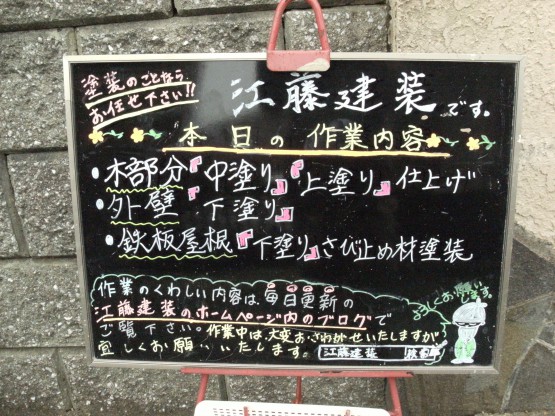 塗装のことなら
お任せ下さい!!
江藤建装です。
本日の作業内容
・木部分『中塗り』『上塗り』仕上げ
・外壁『下塗り』
・鉄板屋根『下塗り』さび止め材塗装
作業のくわしい内容は、毎日更新の
江藤建装のホームページ内のブログで
ご覧下さい。作業中は、大変おさわがせいたしますが
宜しくお願いいたします。
江藤建装
よろしくお願いします。